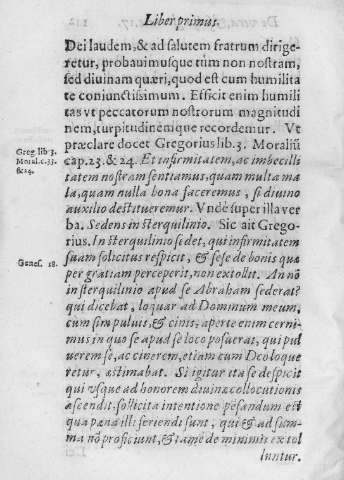 Liber primus.
Dei laudem, & ad salutem fratrum dirige-
retur, probauimusque tùm non nostram,
sed diuinam quæri, quod est cum humilita
te coniunctissimum. Efficit enim humili
tas vt peccatorum nostrorum magnitudi
nem, turpitudinemque recordemur. Vt
præclare docet Gregorius lib. 3. Moraliũ
Greg. lib 3.
Moral. c. 23.
& 24.
cap. 23. & 24. Et infirmitatem, ac imbecilli
tatem nostram sentiamus, quam multa ma
la, quam nulla bona faceremus, si diuino
auxilio destitueremur. Vnde super illa ver
ba. Sedens in sterquilinio. Sic ait Grego-
rius. In sterquilinio sedet, qui infirmitatem
suam solicitus respicit, & sese de bonis quæ
Genes. 18.
per gratiam perceperit, non extollit. An nõ
in sterquilinio apud se Abraham sederat?
qui dicebat, loquar ad Dominum meum,
cum sim puluis, & cinis, aperte enim cerni-
mus in quo se apud se loco posuerat, qui pul
uerem se, ac cinerem, etiam cum Deo loque
retur, æstimabat. Si igitur ita se despicit
qui vsque ad honorem diuinæ collocutionis
ascendit, sollicita intentione pẽsandum est
qua pœna illi feriendi sunt, qui & ad sum-
ma nõ proficiunt, & tamẽ de minimis extol
luntur.